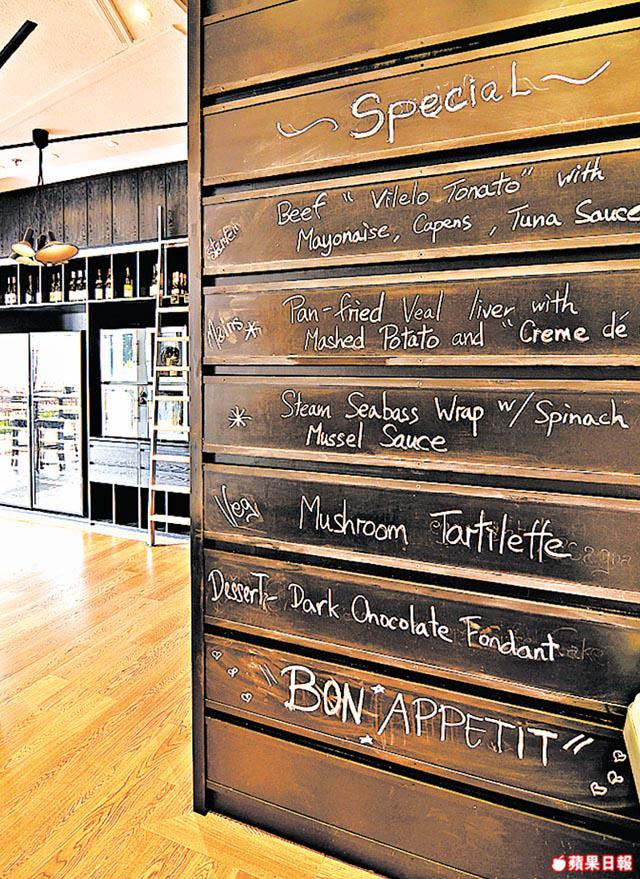 Special
Starters
Beef "Vilelo Tonato" with
Mayonaise, Capens, Tuna Sauce
Mains *
Pan-fried Veal liver with
Mashed Potato and "Creme dé
* Steam Seabass Wrap w/ Spinach
Mussel Sauce
Veg
Mushroom Tartileffe
Dessert- Dark Chocolate Fondant
"BON APPETIT"
蘋果日報